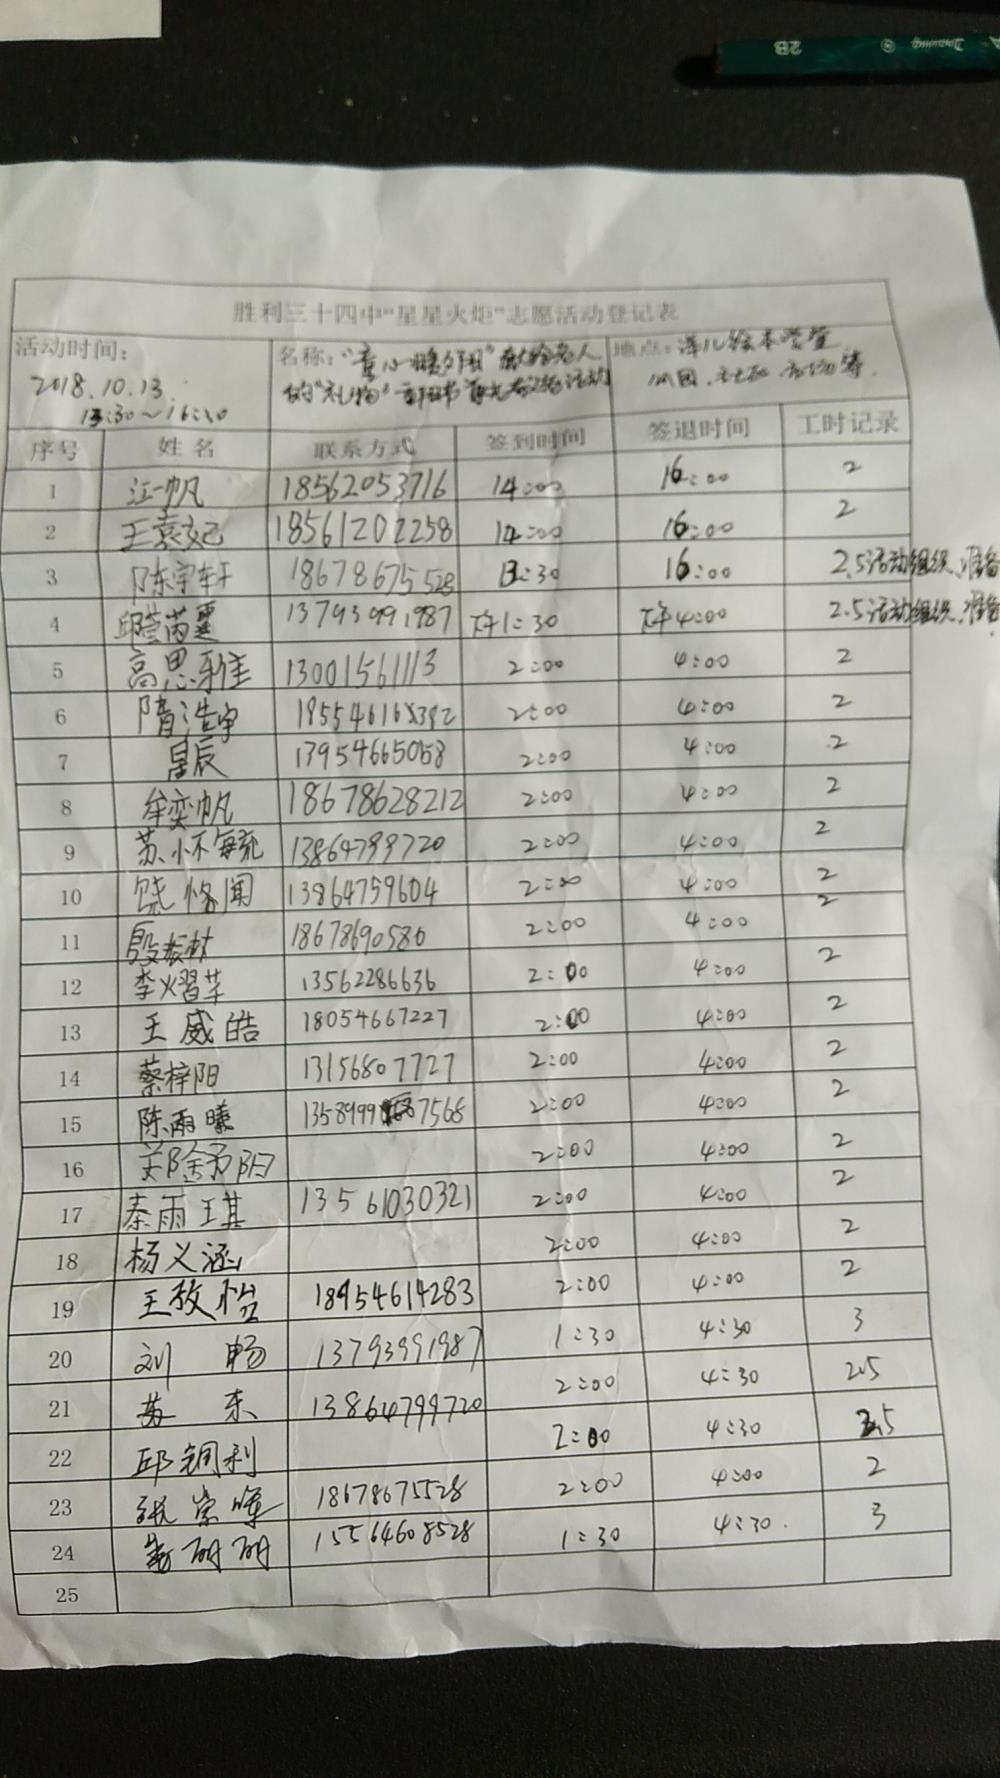 2B
Drawing
胜利三十四中"星星火炬"志愿活动登记表
活动时间: 2018.10.13. 13:30~16:30
名称: "童心暖夕阳" 献给老人的"礼物"
地点: 绘本 公园.社区.市场等.
序号 姓名 联系方式 签到时间 签退时间 工时记录
1 江一帆 18562053716 14:00 16:00 2
2 王袁妃 18561202258 14:00 16:00 2
3 陈宇轩 18678675528 13:30 16:00 2.5活动组织、准备
4 邱莹芮 13793991987 下午1:30 下午4:00 2.5活动组织、准备
5 高思雅 13001561113 2:00 4:00 2
6 隋浩宇 2:00 4:00 2
7 辰 13954665058 2:00 4:00 2
8 牟奕帆 18678628212 2:00 4:00 2
9 苏怀毓 13864799720 2:00 4:00 2
10 饶恪闻 13864759604 2:00 4:00 2
11 殷振材 18678690580 2:00 4:00 2
12 李熠苹 13562286636 2:00 4:00 2
13 王威皓 18054667227 2:00 4:00 2
14 蔡梓阳 13156807727 2:00 4:00 2
15 陈雨曦 1358999 7568 2:00 4:00 2
16 2:00 4:00 2
17 秦雨琪 13561030321 2:00 4:00 2
18 杨义涵 2:00 4:00 2
19 王敖怡 18954614283 2:00 4:00 2
20 刘畅 13793991987 1:30 4:30 3
21 苏东 13864799720 2:00 4:30 2.5
22 邱钢利 2:00 4:30 2.5
23 张崇峰 18678675528 2:00 4:00 2
24 丽丽 15564608528 1:30 4:30. 3
25